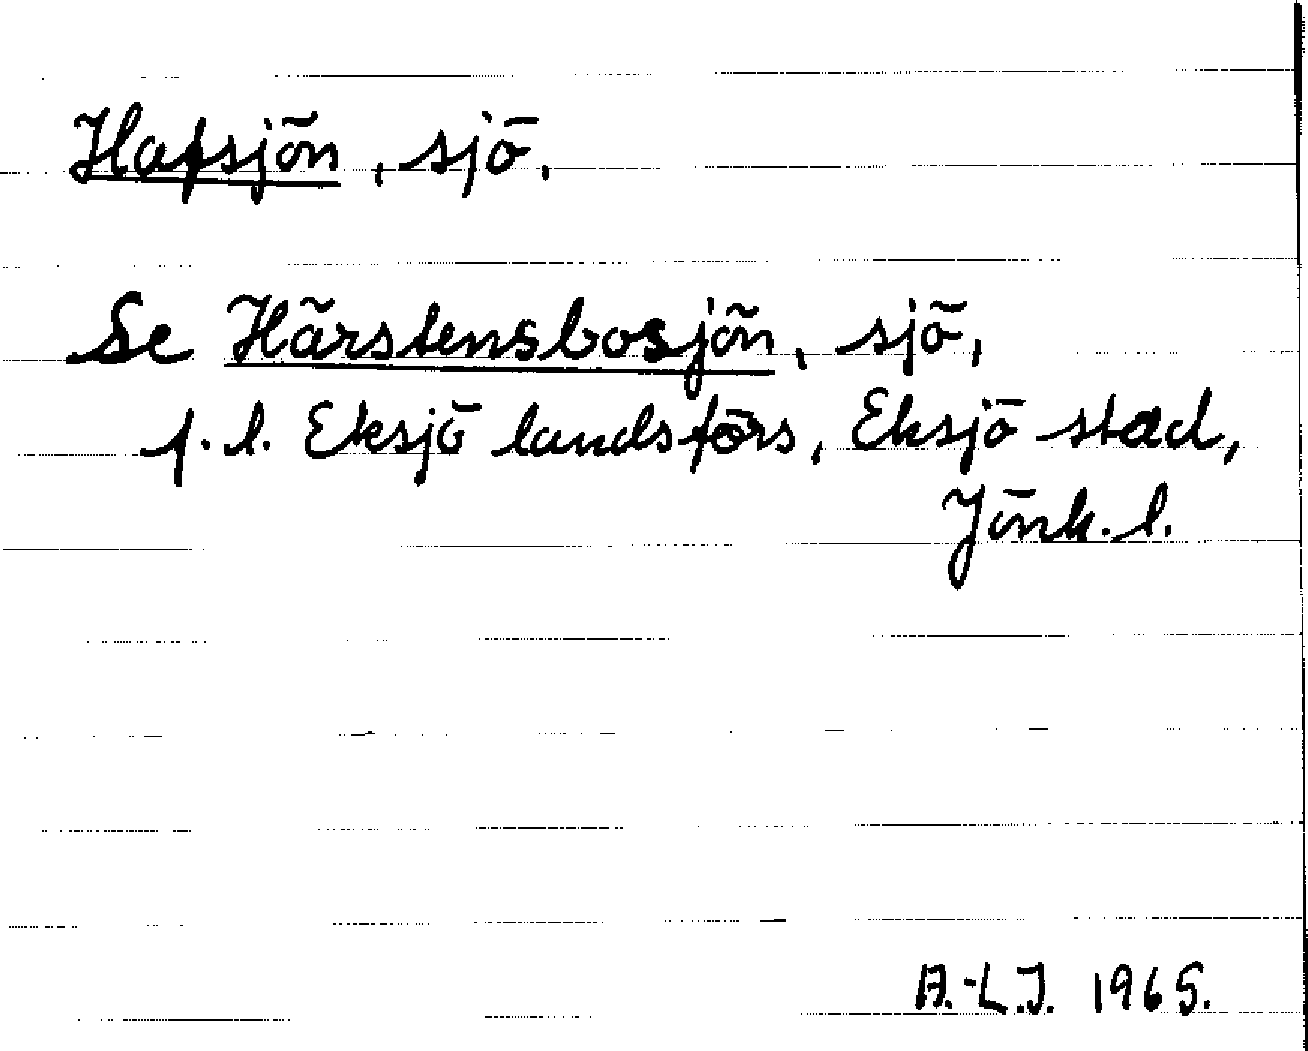 Hafsjön, sjö.
Se Härstensbosjön, sjö,
f. l. Eksjö landsförs, Eksjö stad,
Jönk. l.
A.-L.J. 1965.